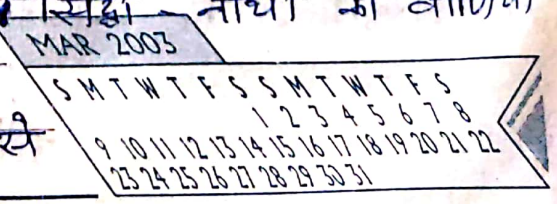 MAR 2003
S M T W T F S S M T W T F S
1 2 3 4 5 6 7 8
से
9 10 11 12 13 14 15 16 17 18 19 20 21 22
23 24 25 26 27 28 29 30 31